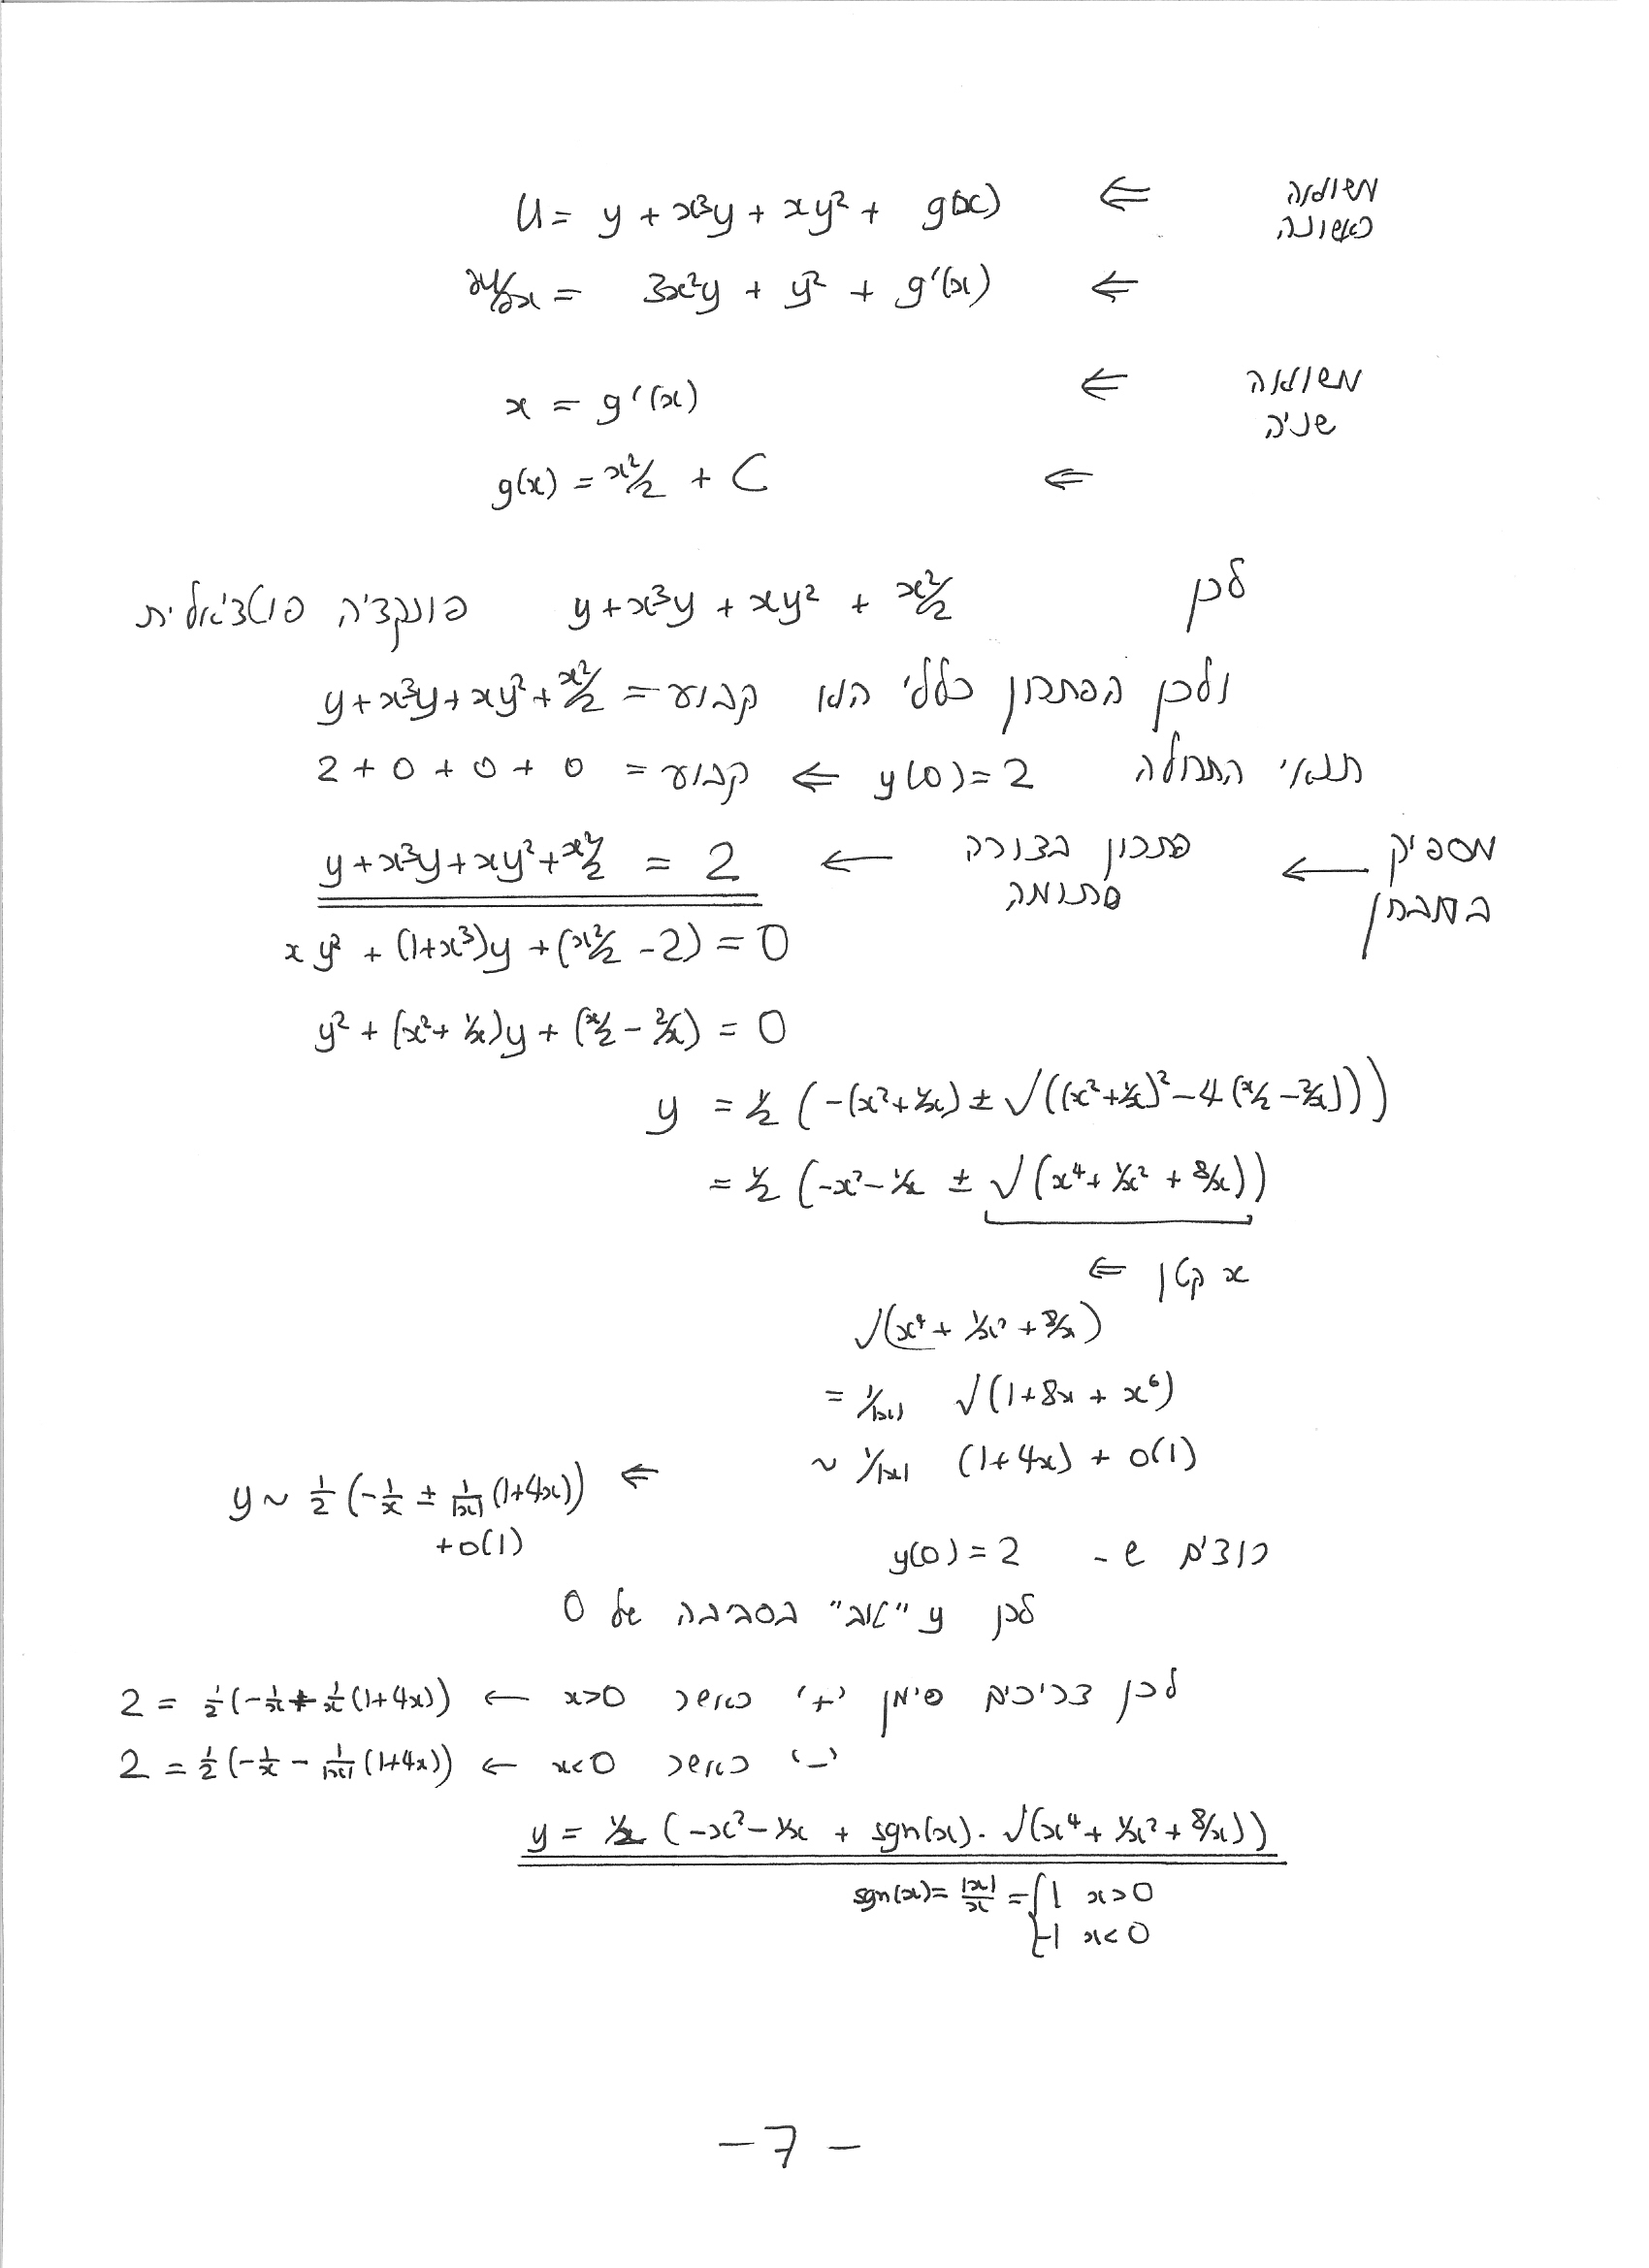 משוואה ראשונה ⇐ U = y + x³y + xy² + g(x)
⇐ ∂U/∂x = 3x²y + y² + g'(x)
משוואה שניה ⇐ x = g'(x)
⇐ g(x) = x²/2 + C
לכן y + x³y + xy² + x²/2 פונקציה פוטנציאלית
ולכן הפתרון כללי הוא קבוע = y + x³y + xy² + x²/2
תנאי התחלה y(0) = 2 ⇐ קבוע = 2 + 0 + 0 + 0
מספיק במבחן ← פתרון בצורה סתומה ← y + x³y + xy² + x²/2 = 2
xy² + (1+x³)y + (x²/2 - 2) = 0
y² + (x² + 1/x)y + (x/2 - 2/x) = 0
y = ½ (-(x² + 1/x) ± √((x² + 1/x)² - 4(x/2 - 2/x)))
= ½ (-x² - 1/x ± √(x⁴ + 1/x² + 8/x))
x קטן ⇐
√(x⁴ + 1/x² + 8/x)
= 1/|x| √(1 + 8x + x⁶)
~ 1/|x| (1+4x) + o(1)
⇐ y ~ 1/2 (-1/x ± 1/|x| (1+4x)) + o(1)
רוצים ש- y(0) = 2
לכן y "טוב" בסביבה של 0
לכן צריכים סימן '+' כאשר x>0 ← 2 = 1/2 (-1/x + 1/x (1+4x))
'-' כאשר x<0 ← 2 = 1/2 (-1/x - 1/|x| (1+4x))
y = ½ (-x² - 1/x + sgn(x)·√(x⁴ + 1/x² + 8/x))
sgn(x) = |x|/x = { 1 x>0
-1 x<0
-7-